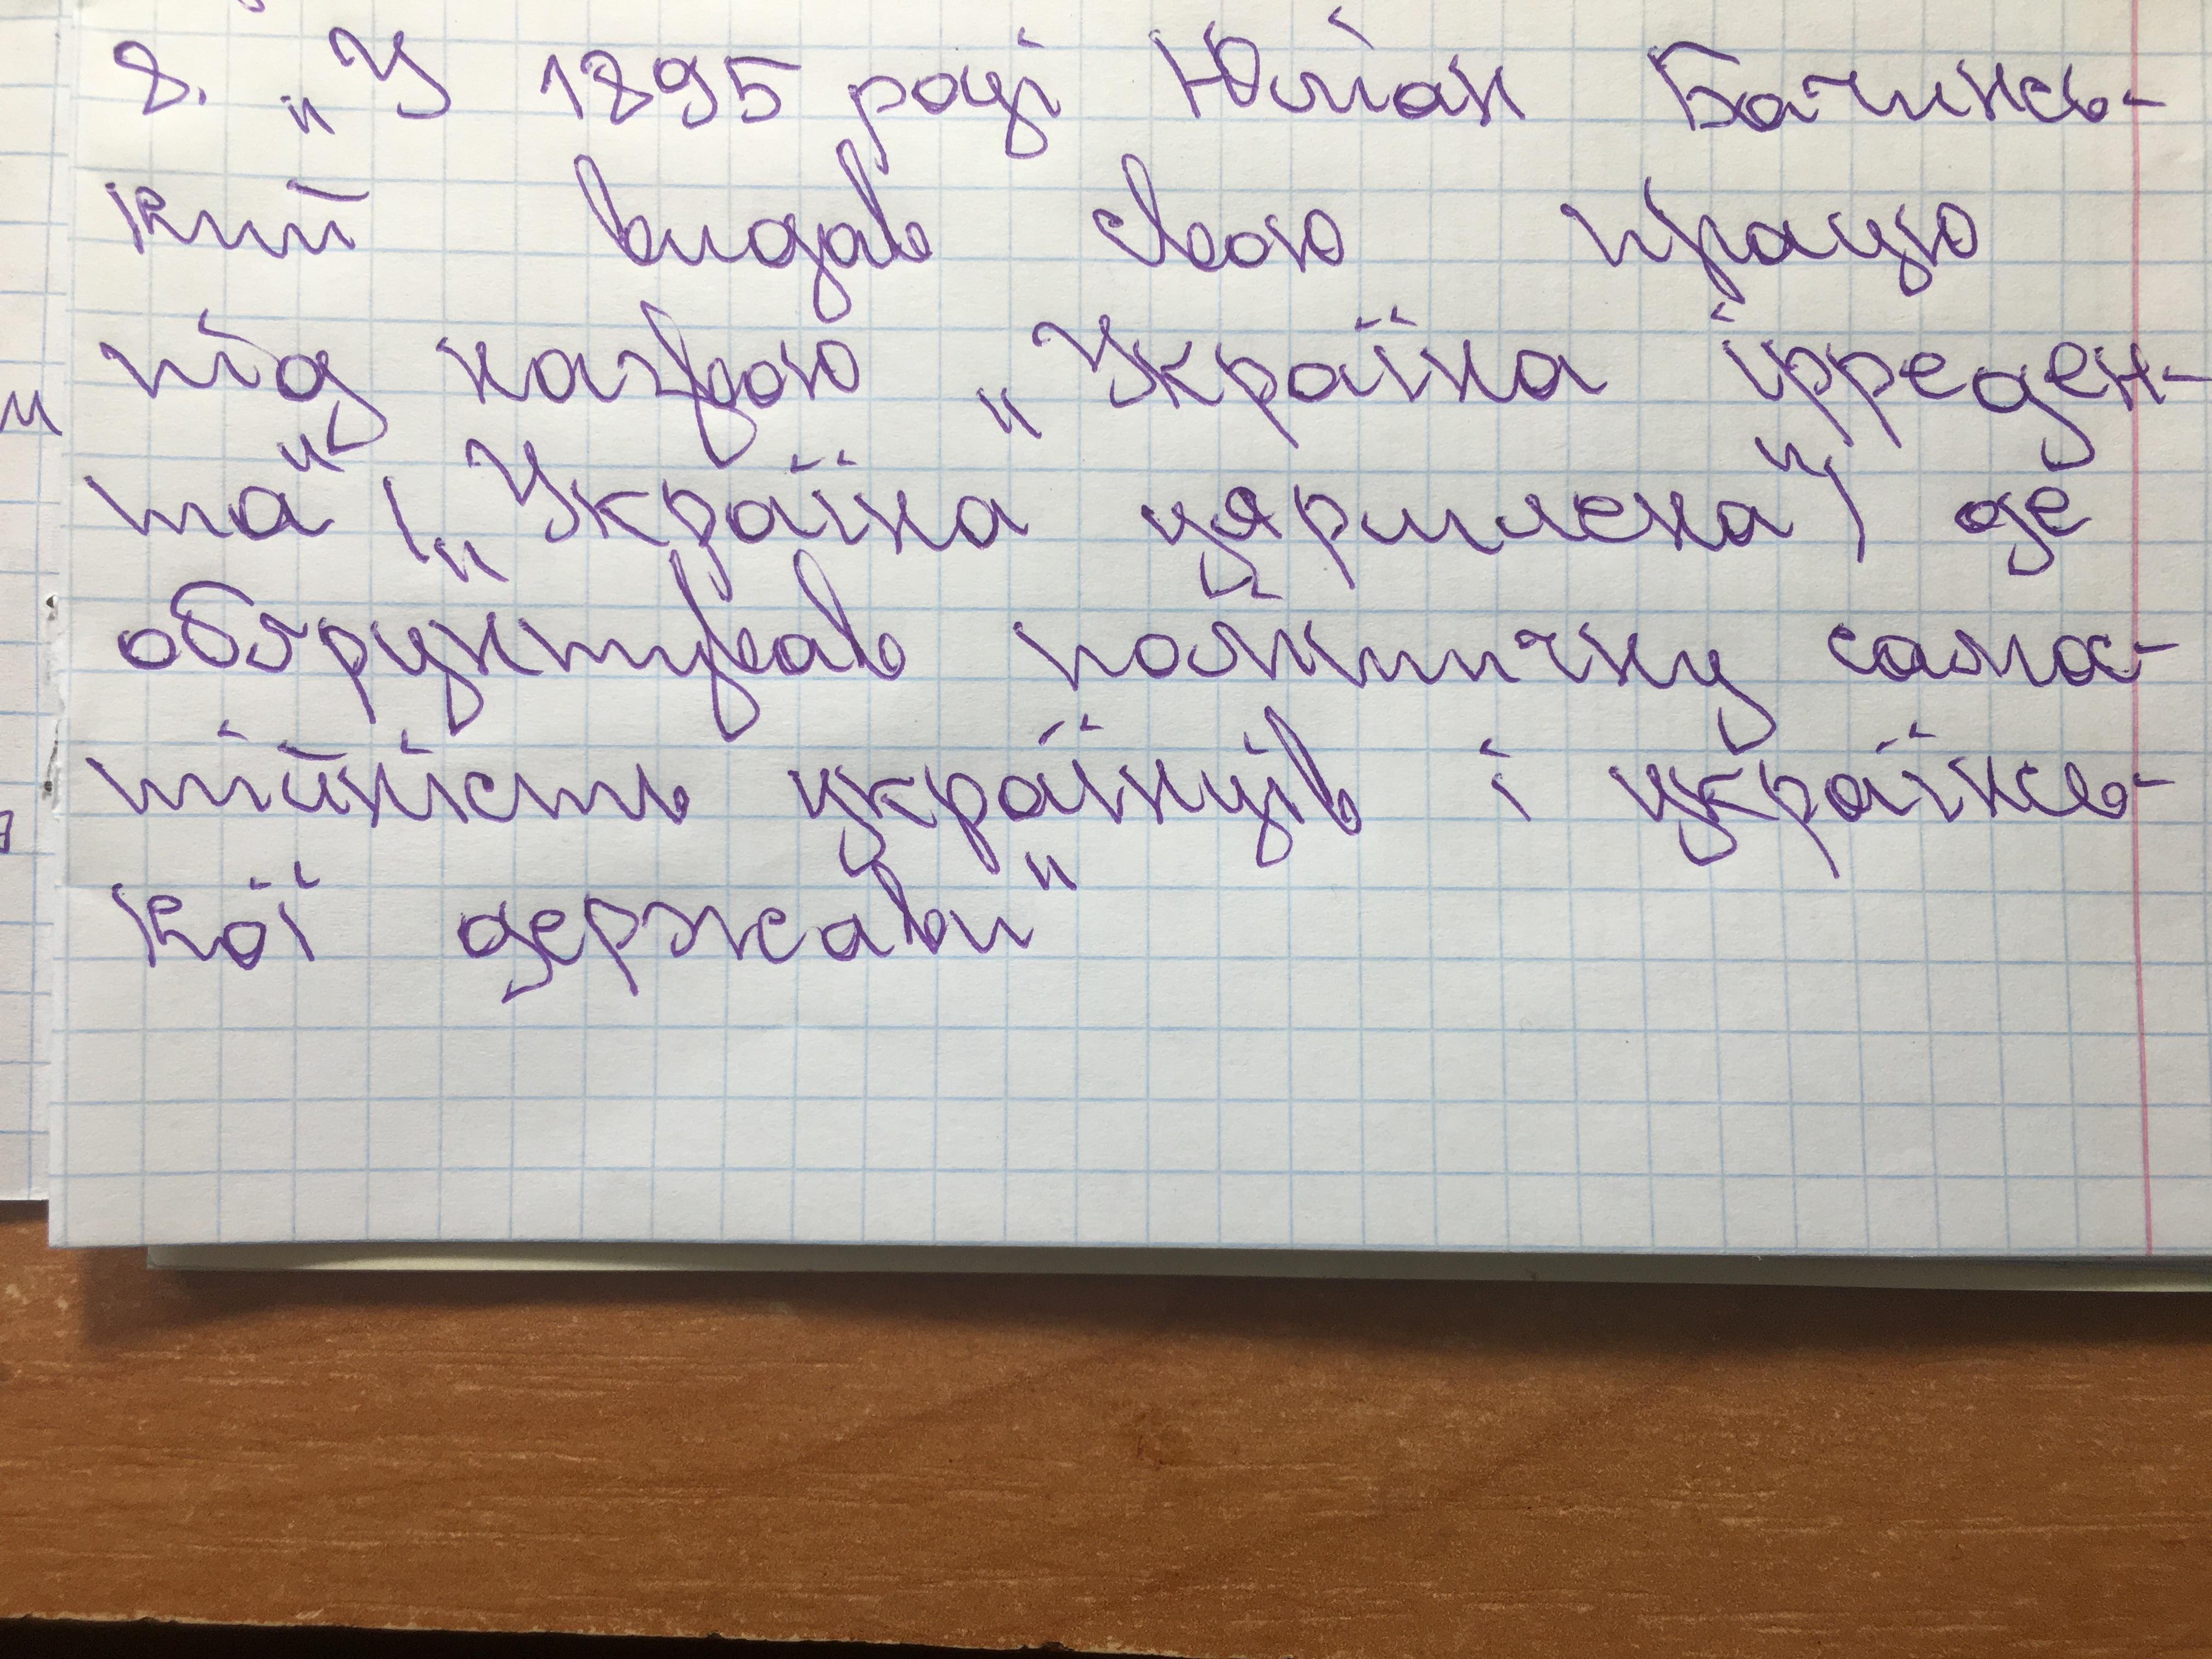 8. „У 1895 році Юліан Бачинсь-
кий видав свою працю
під назвою „Україна ірреден-
та" („Україна уярмлена") де
обґрунтував політичну само-
тійність українців і українсь-
кої держави"